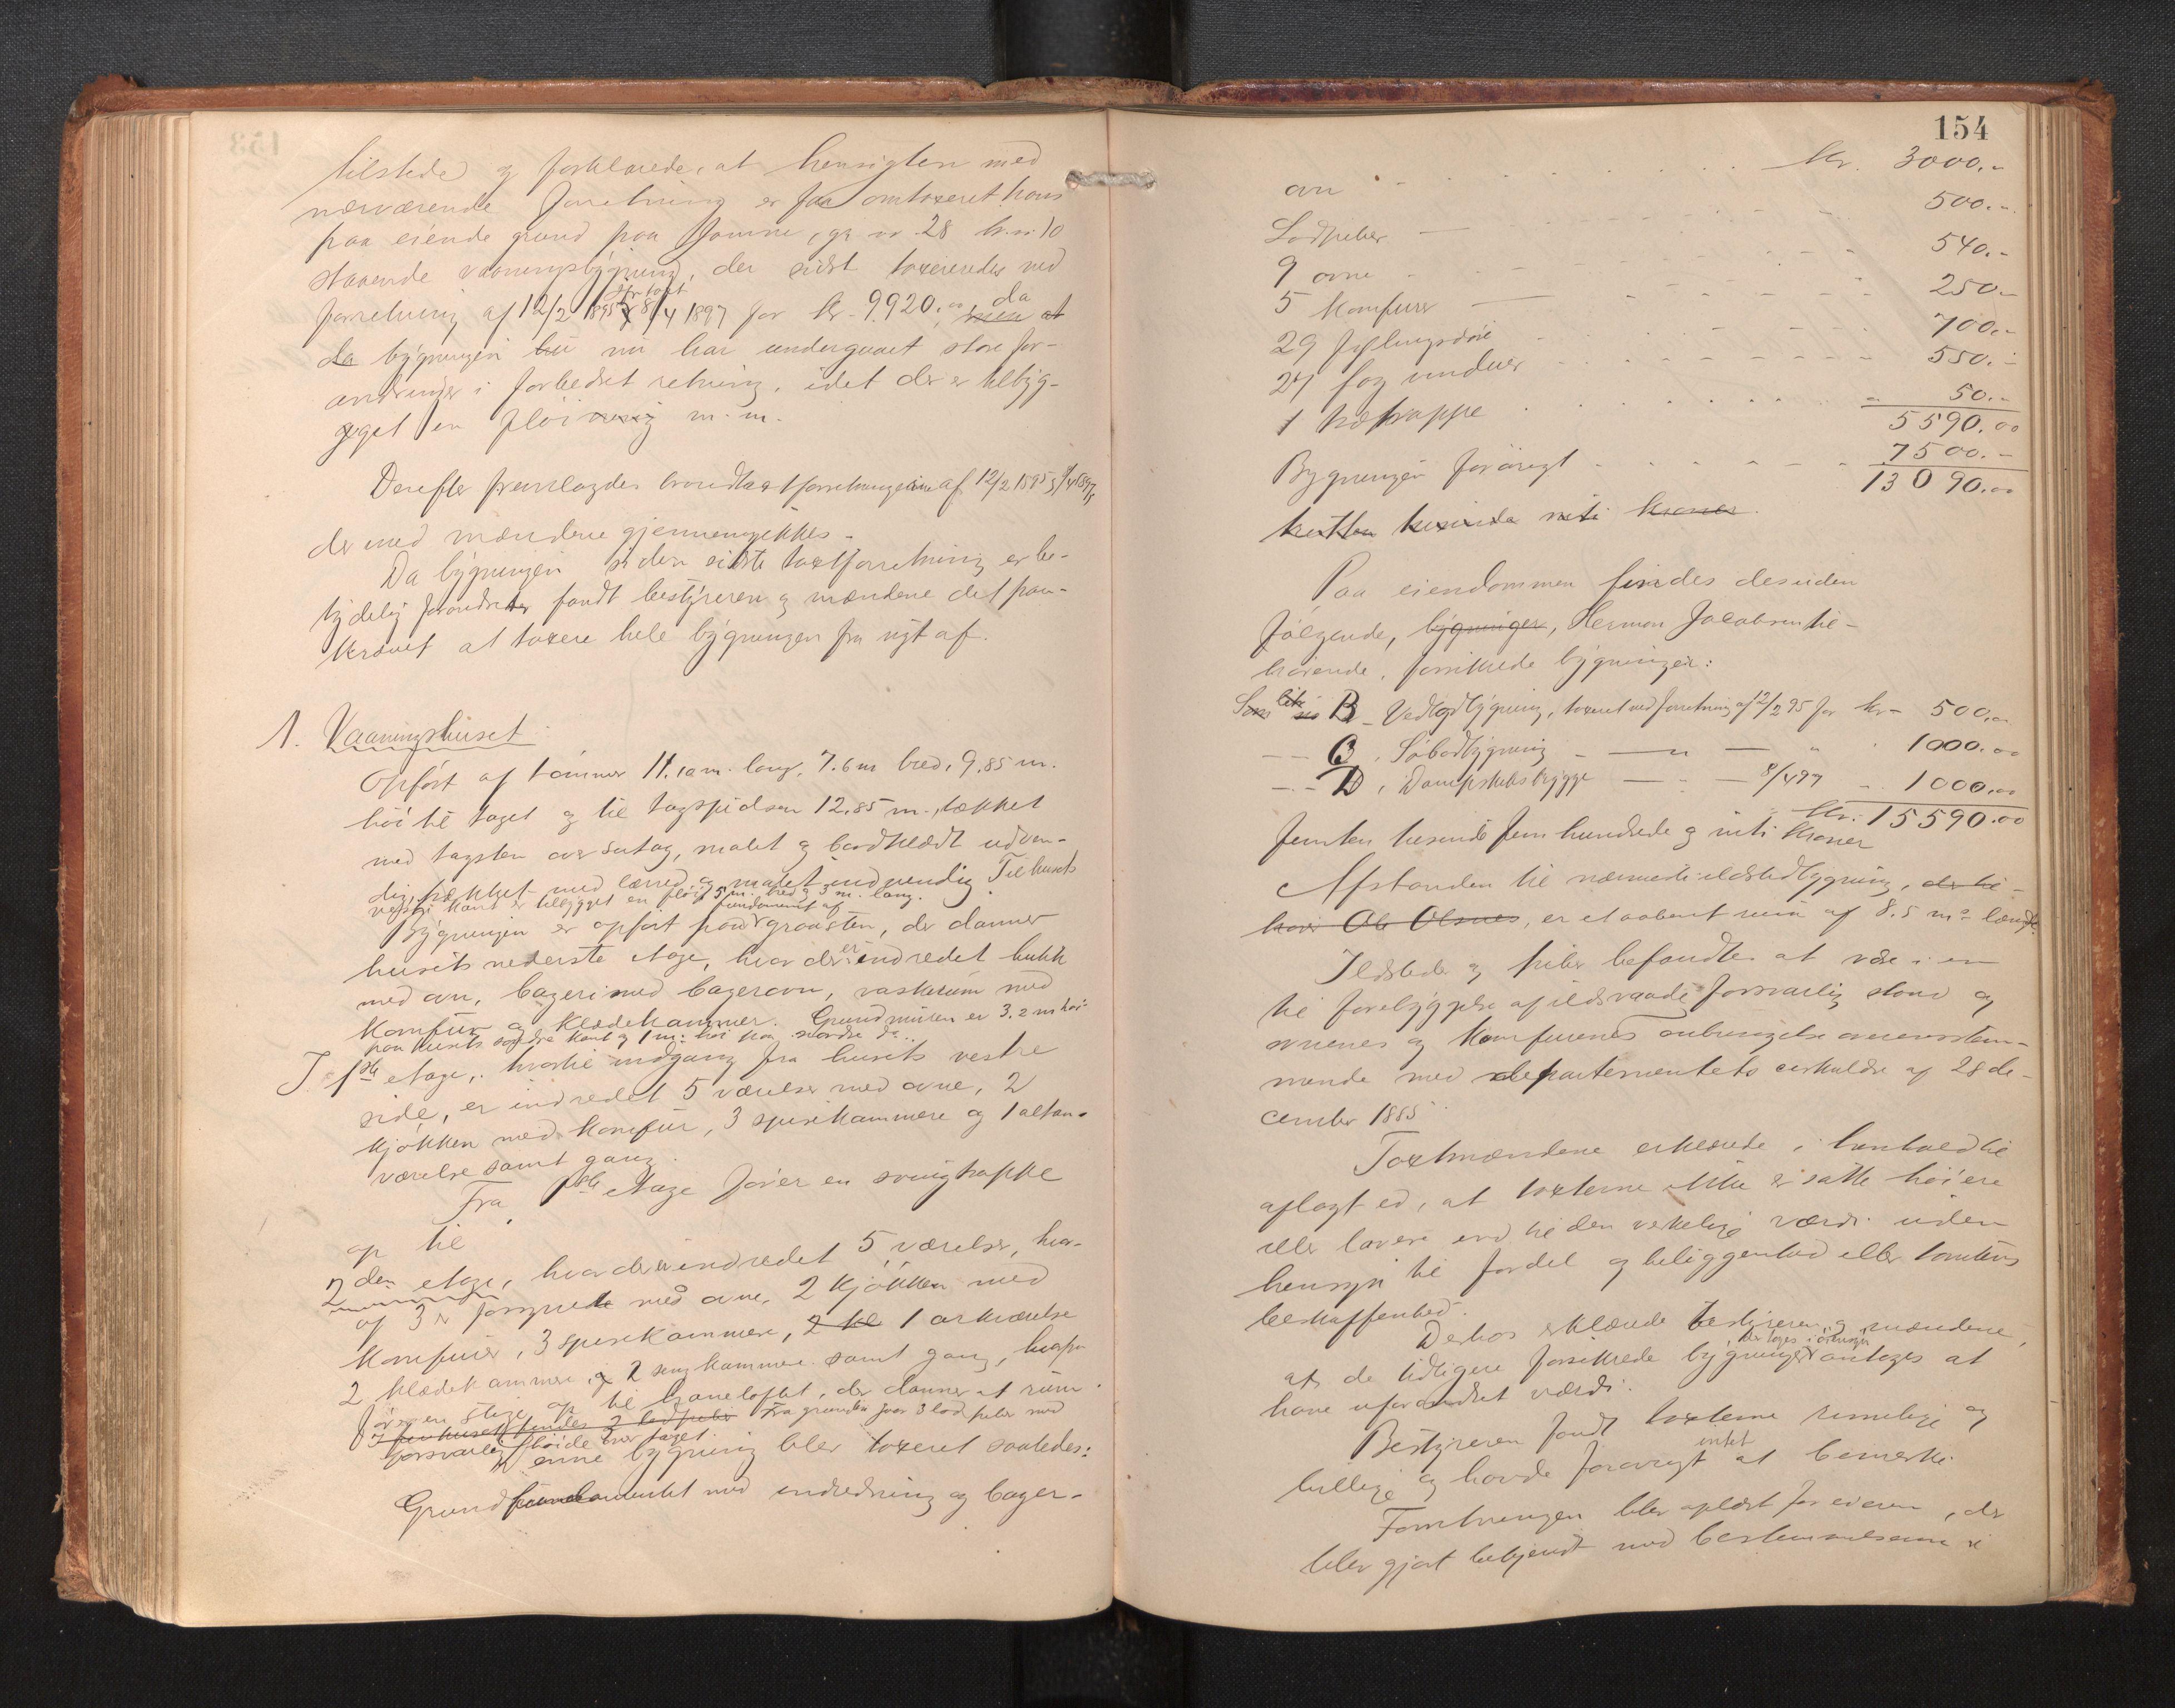 tilstede og forklarede, at hensigten med
nærværende forretning er faa omtaxeret hans
paa eiende grund paa Tomne, gr. nr. 28 br. nr. 10
staaende vaaningsbygning, der sidst taxeredes ved
forretning af 12/2 1895 8/4 1897 for kr. 9920.00, men at da
da bygningen nu har undergaaet store for-
andringer i forbedret retning, idet der er tilbyg-
get en fløi m. m.
Derefter fremlagdes brandtaxtforretningerne af 12/2 1895 og 8/4 1897,
der med mændene gjennemgikkes.
Da bygningen siden sidste taxtforretning er be-
tydelig forandret fandt bestyreren og mændene det paa-
krævet at taxere hele bygningen fra nyt af.
1. Vaaningshuset
Opført af tømmer 11.10 m. lang, 7.6 m bred, 9.85 m.
høi til taget og til tagspidsen 12.85 m., tækket
med tagsten over sutag, malet og bordklædt udven-
dig, trækket med lærred og malet indvendig. Til husets
vestre kant er tilbygget en fløi 5 m. bred og 3 m. lang.
Bygningen er opført paa fundament af graasten, der danner
husets nederste etage, hvor der er indredet butik
med ovn, bageri med bagerovn, vaskerum med
komfur og klædekammer. Grundmuren er 3.2 m høi
paa husets søndre kant og 1 m. høi paa nordre do.
I 1ste etage, hvortil indgang fra husets vestre
side, er indredet 5 værelser med ovne, 2
kjøkken med komfur, 3 spisekammere og 1 altan-
værelse samt gang.
Fra 1ste etage fører en svingtrappe
op til
2den etage, hvor der er indredet 5 værelser, hvor-
af 3 er forsynede med ovne, 2 kjøkken med
komfurer, 3 spisekammere, 2 kl 1 arkværelse
2 klædekammere og 2 sengkammere samt gang, hvorfra
fører en stige op til haneloftet, der danner et rum.
I huset findes 2 lodpiber Fra grunden gaar 3 lodpiber med
forsvarlig høide over taget.
Denne bygning blev taxeret saaledes:
Grundfundamentet med indredning og bager-
154
ovn kr. 3000.-
Lodpiber 500.-
9 ovne 540.-
5 komfurer 250.-
29 fyldingsdøre 700.-
27 fag vinduer 550.-
1 trappe 50.-
5590.00
Bygningen forøvrigt 7500.-
13090.00
tretten tusinde niti kroner.
Paa eiendommen findes desuden
følgende, bygninger, Herman Jacobsen til-
hørende, forsikrede bygninger:
Som litr B. Vedbodbygning, taxeret ved forretning af 12/2 95 for kr. 500.00
- - C, Søbodbygning - " - " 1000.00
- - D, Dampskibsbrygge - " - 8/4 97 - 1000.00
Kr. 15590.00
Femten tusinde fem hundrede og niti kroner
Afstanden til nærmeste ildstedbygning, der til-
hører Ole Olsnes, er et aabent rum af 8.5 m. længde.
Ildsteder og piber befandtes at være i en
til forebyggelse af ildsvaade forsvarlig stand og
ovnenes og komfurenes anbringelse overensstem-
mende med departementets cirkulære af 28 de-
cember 1885.
Taxtmændene erklærede i henhold til
aflagt ed, at taxterne ikke er satte høiere
eller lavere end til den virkelige værdi uden
hensyn til fordel og beliggenhed eller tomtens
beskaffenhed.
Derhos erklærede bestyreren og mændene,
at de tidligere forsikrede bygninger, der toges i øiesyn antages at
have uforandret værdi.
Bestyreren fandt taxterne rimelige og
billige og havde forøvrigt intet at bemærke.
Forretningen blev oplæst for eieren, der
blev gjort bekjendt med bestemmelserne i